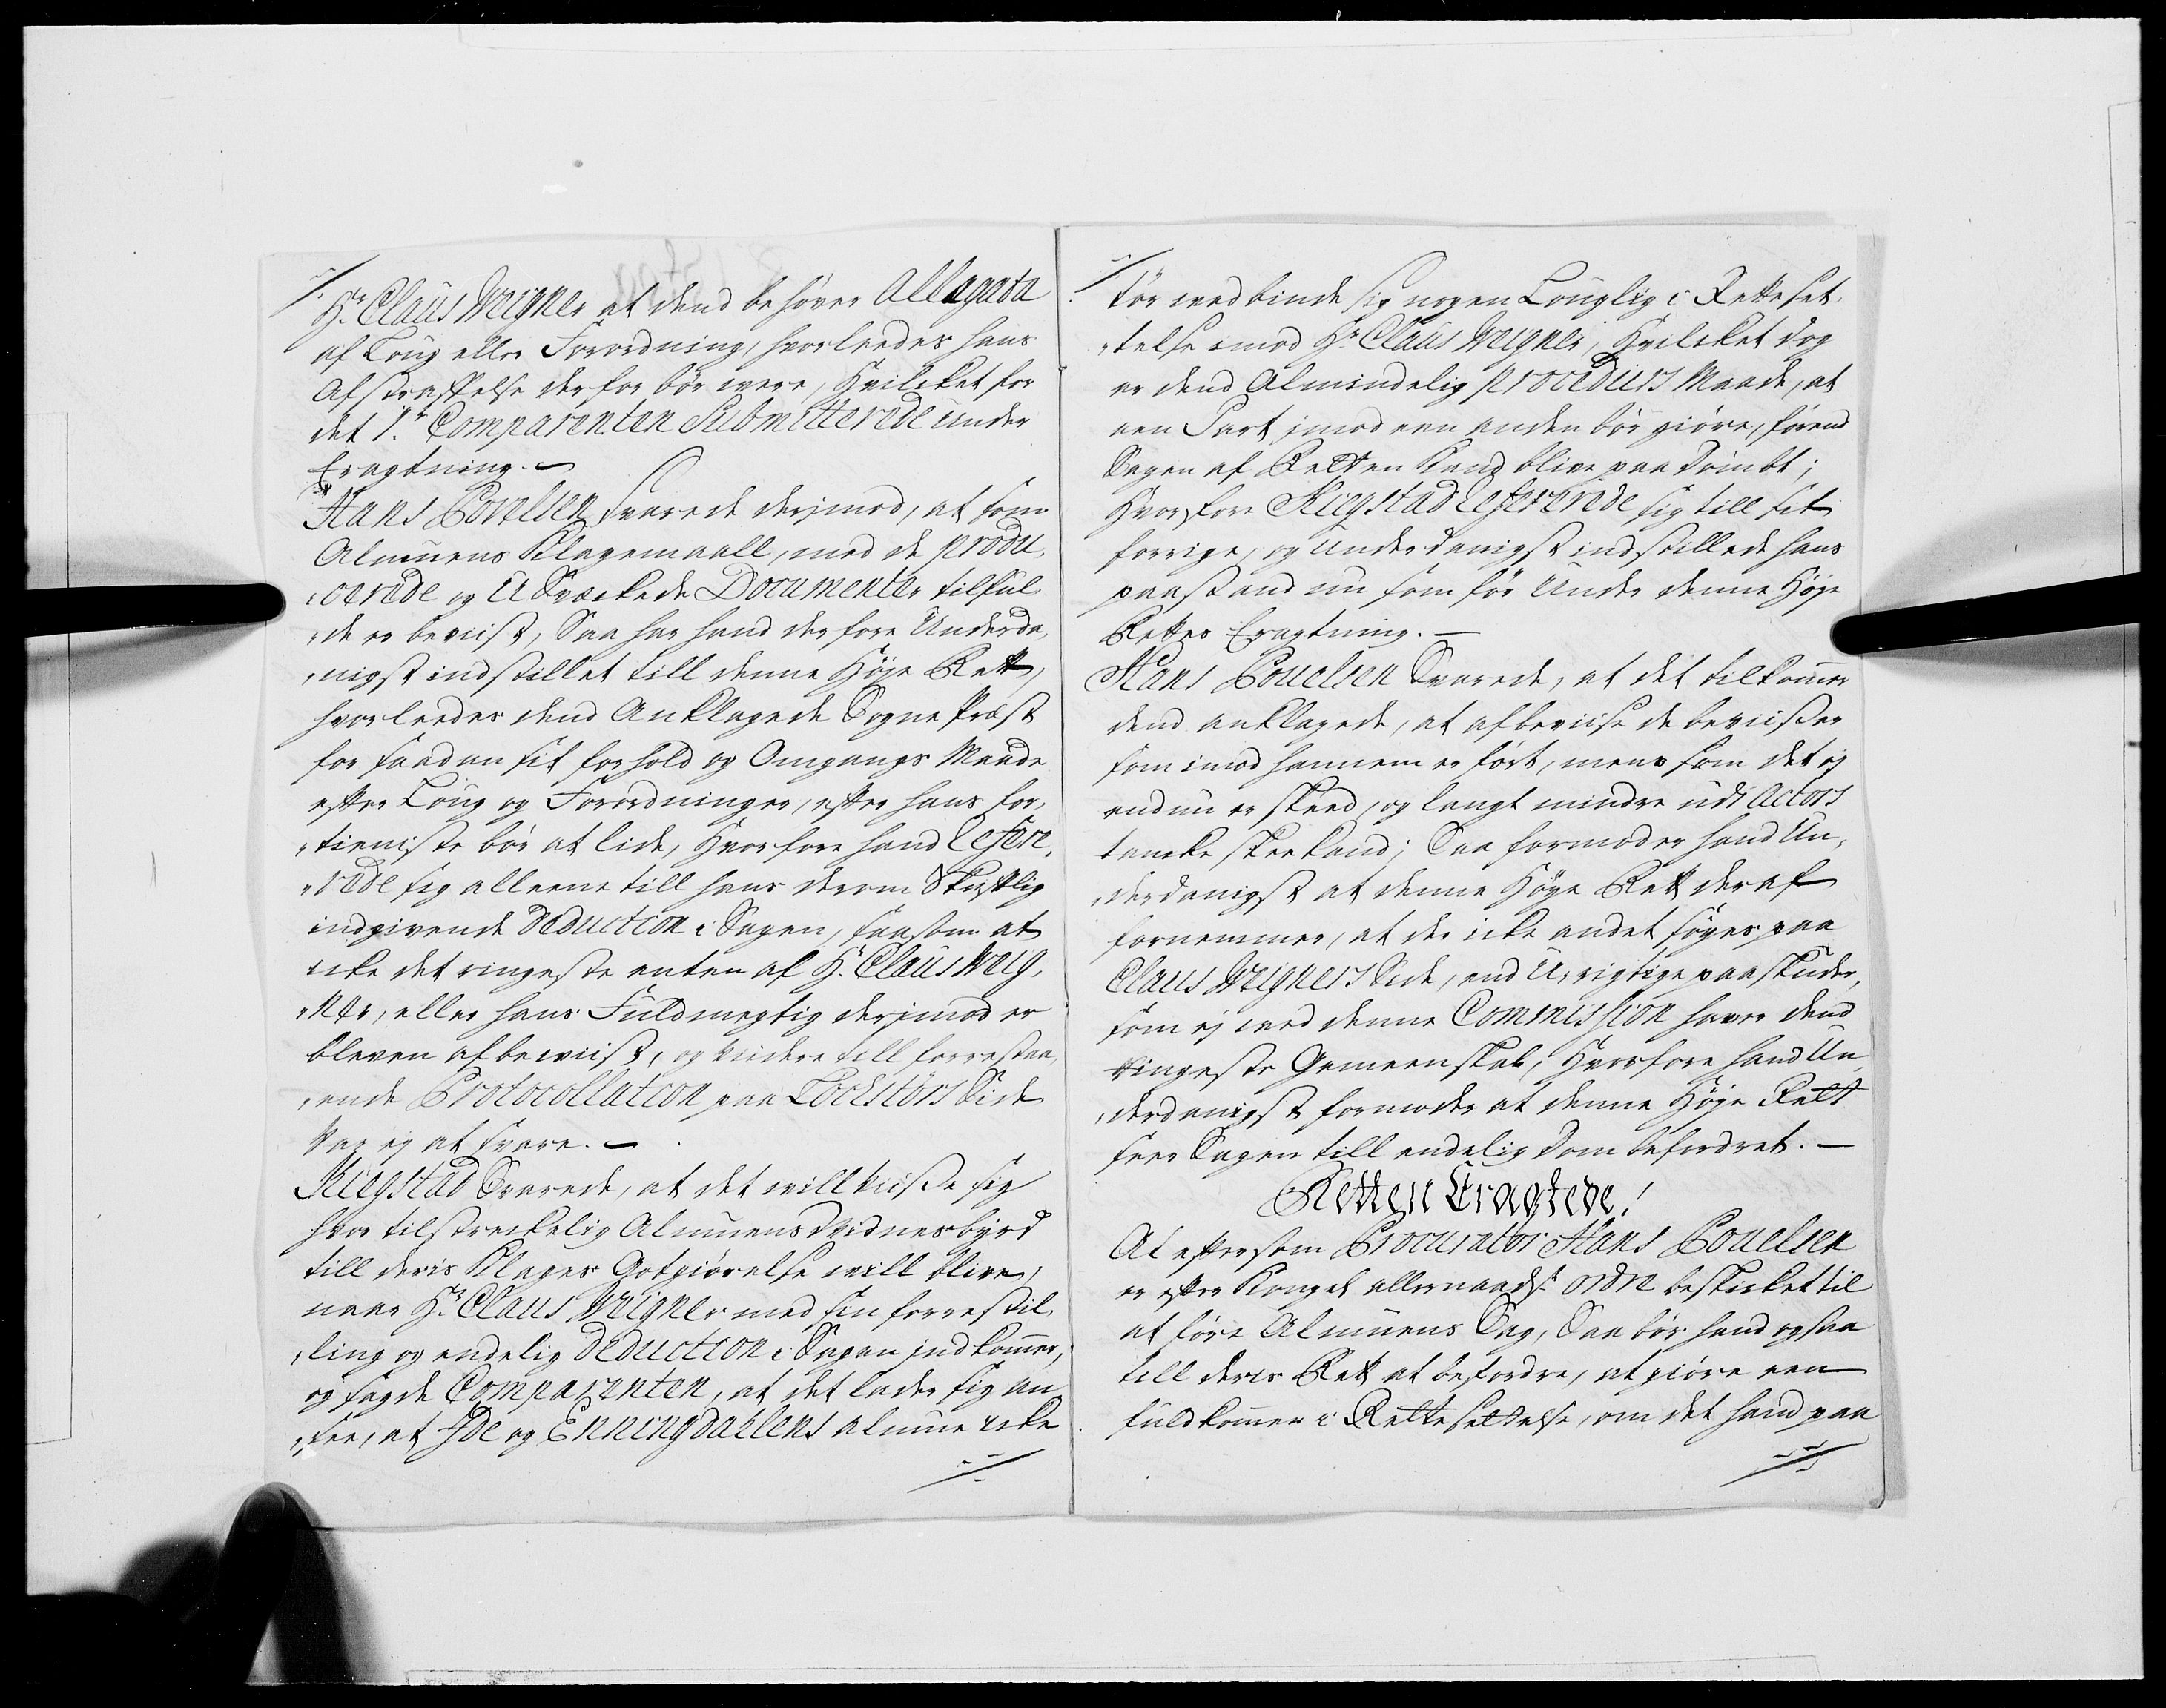 Hr. Claus Weigner at dend behøver Allegata
af Loug eller Forordning, hvorleedes hans
Afstraffelse derfor bør være, Hvilcket for
det 1te Comparenten Submitterede under
Eragtning. —
Hans Pouelsen Svarede derjmod, at som
Almuens Klagemaall, med de produ,
,,cerede og Udstrackede Documenter tilful
,,de er beviist, Saa har hand derfore Underda,
,,nigst indstillet till denne Høye Rett,
hvorleedes dend Anklagede Sogne Præst
for saadan sit forhold og Omgangs Maade
efter Loug og Forordninger, efter hans for,
,,tieniste bør at lide, Hvorfore hand Refere,
,,rede sig alleene till hans derom Skriftlig
indgivende Deduction i Sagen, saasom at
icke det ringeste enten af Hr. Claus Weig,
,,ner, eller hans Fuldmegtig derjmod er
bleven afbeviist, og videre till forrestaa,
,,ende Protocollation paa Lockstørs Side
var ej at svare. —
Riegstad Svarede, at det will viise sig
hvor tilstreckelig Almuens Vidnesbyrd
till deris Klages Gotgiørelse will blive,
naar Hr. Claus Weigner med sin forrestil,
,,ling og endelig Deduction i Sagen indkommer,
og sagde Comparenten, at det lader sig an
,,see, at Ide og Enningdahlens almue icke
tør wed binde sig nogen Louglig i Rettesæt,
,,telse imod Hr. Claus Weigner, Hvilcket dog
er dend Almindelig procedurs Maade, at
een Part jmod een anden bør giøre, førend
Sagen af Retten kand blive paa dømbt;
Hvorfore Riegstad Refererede sig till sit
forrige, og Underdanigst indstillede hans
paastand nu som før Under denne Høye
Rettes Eragtning. —
Hans Pouelsen Svarede, at det tilkommer
dend anklagede, at afbeviise de beviiser
som imod hannem er ført, mens som det ej
endnu er skeed, og langt mindre udi Actors
tancke skee kand; Saa formoder hand Un,
,,derdanigst at denne Høye Rett deraf
fornemmer, at der icke andet søges paa
Claus Weigners Side, end Urigtige paaskuder,
som ej med denne Commission haver dend
ringeste Gemeenskab, Hvorfore hand Un,
,,derdanigst formoder at denne Høye Rett
seer Sagen till endelig Dom befordret. —
Retten Eragtede!
At eftersom Procurator Hans Pouelsen
er efter Kongel allernaadst ordre beskicket til
at føre Almuens Sag, Saa bør hand ogsaa
till deris Rett at befordre, at giøre een
fuldkommen i Rettesettelse, om det hand paa